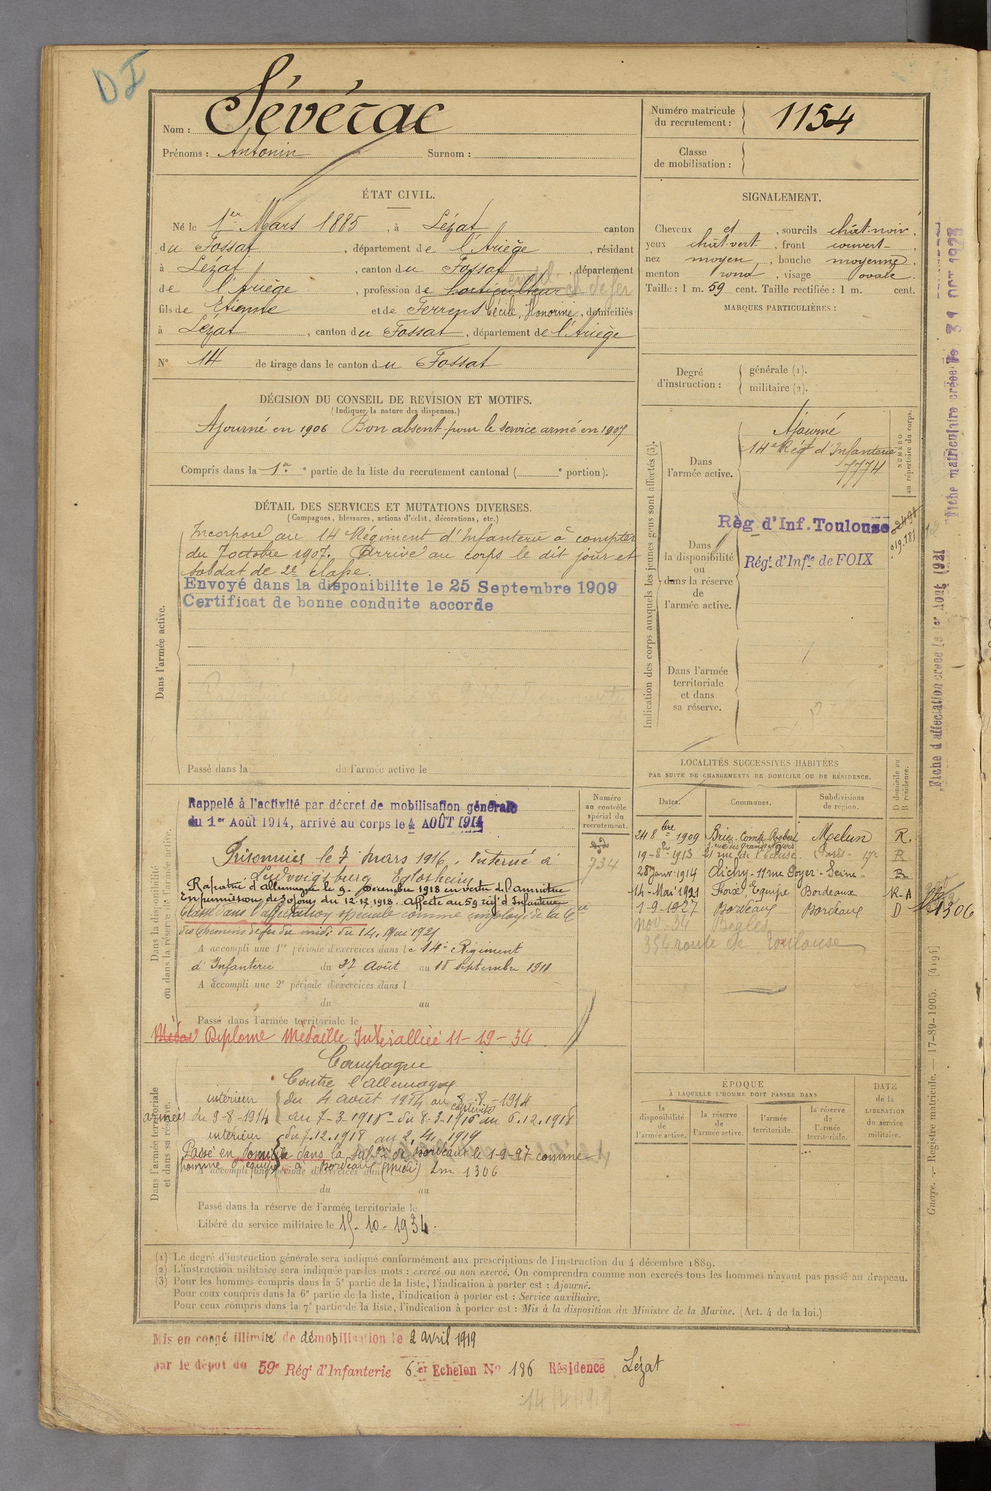 DI
Nom : Sévérac
Prénoms : Antonin Surnom :
Numéro matricule du recrutement : 1154
Classe de mobilisation :
ÉTAT CIVIL.
Né le 1er Mars 1885, à Lézat canton
du Fossat, département de l'Ariège, résidant
à Lézat, canton du Fossat, département
de l'Ariège, profession de horticulteur ch de fer
fils de Etienne et de Ferrens Cécile, Honorine, domiciliés
à Lézat, canton du Fossat, département de l'Ariège
N° 14 de tirage dans le canton du Fossat
SIGNALEMENT.
Cheveux et, sourcils chât-noir,
yeux chât-vert, front couvert,
nez moyen, bouche moyenne,
menton rond, visage ovale.
Taille : 1 m. 59 cent. Taille rectifiée : 1 m. cent.
MARQUES PARTICULIÈRES :
Degré d'instruction : générale (1).
militaire (2).
DÉCISION DU CONSEIL DE REVISION ET MOTIFS.
(Indiquer la nature des dispenses.)
Ajourné en 1906 Bon absent pour le service armé en 1907
Compris dans la 1re partie de la liste du recrutement cantonal ( e portion).
DÉTAIL DES SERVICES ET MUTATIONS DIVERSES.
(Campagnes, blessures, actions d'éclat, décorations, etc.)
Dans l'armée active.
Incorporé au 14 Régiment d'Infanterie à compter
du 7 octobre 1907. Arrivé au corps le dit jour et
soldat de 2e classe.
Envoyé dans la disponibilite le 25 Septembre 1909
Certificat de bonne conduite accorde
Passé dans la de l'armée active le
Indication des corps auxquels les jeunes gens sont affectés (3).
NUMÉRO au répertoire du corps.
Dans l'armée active.
Ajourné
14e Régt d'Infanterie
7774
Dans la disponibilité ou dans la réserve de l'armée active.
Règ d'Inf. Toulouse
Régt d'Infie de FOIX
Dans l'armée territoriale et dans sa réserve.
Fiche matriculaire créée le 31 OCT 1928
Fiche d'affectation créée le 1er Août 1921
LOCALITÉS SUCCESSIVES HABITÉES
PAR SUITE DE CHANGEMENTS DE DOMICILE OU DE RÉSIDENCE.
Dates. Communes. Subdivisions de région. D domicile ou R résidence.
24 8bre 1909 Brie-Comte-Robert Melun R.
28 Janv 1914 Clichy-11 rue Poyer - Seine
14-Mai-1921 Foix Equipe Bordeaux K-A
1-9-1927 Bordeaux Bordeaux D 1306
Nov. 34 Bègles
354 route de Toulouse
Dans la disponibilité ou dans la réserve de l'armée active.
Numéro au contrôle spécial du recrutement.
934
Rappelé à l'activité par décret de mobilisation générale
du 1er Août 1914, arrivé au corps le 4 AOÛT 1914
Prisonnier le 7 mars 1916, Interné à
Ludwigsburg Eglosheim
Rapatrié d'allemagne le 9. Décembre 1918 en vertu de l'armistice
En permission de 30 jours du 12.12.1918. Affecté au 59 régt d'Infanterie
Classé dans l'affectation spéciale comme employé de la Cie
des Chemins de fer du midi du 14 Mai 1921
A accompli une 1re période d'exercices dans le 14e Régiment
d'Infanterie du 27 Août au 18 septembre 1911
A accompli une 2e période d'exercices dans l
du au
Passé dans l'armée territoriale le
Diplome Médaille Interalliée 11-19-34.
Dans l'armée territoriale et dans sa réserve.
Campagne
Contre l'allemagne
intérieur du 4 août 1914 au 8-8-1914
armées du 9-8-1914 au 7-3-1916 - du 8-3-1916 au 6.12.1918
captivité
intérieur du 7.12.1918 au 2.4.1919
Passé en domicile dans la subon de Bordeaux le 1-9-27 comme
homme d'équipe à Bordeaux (Midi) Lm 1306
A accompli une période d'exercices dans l
du au
Passé dans la réserve de l'armée territoriale le
Libéré du service militaire le 15-10-1934.
ÉPOQUE
À LAQUELLE L'HOMME DOIT PASSER DANS
la disponibilité de l'armée active. la réserve de l'armée active. l'armée territoriale. la réserve de l'armée territoriale.
DATE DE LA LIBÉRATION du service militaire.
Guerre. — Registre matricule. — 17-89-1905. [4194]
(1) Le degré d'instruction générale sera indiqué conformément aux prescriptions de l'instruction du 4 décembre 1889.
(2) L'instruction militaire sera indiquée par les mots : exercé ou non exercé. On comprendra comme non exercés tous les hommes n'ayant pas passé au drapeau.
(3) Pour les hommes compris dans la 5e partie de la liste, l'indication à porter est : Ajourné.
Pour ceux compris dans la 6e partie de la liste, l'indication à porter est : Service auxiliaire.
Pour ceux compris dans la 7e partie de la liste, l'indication à porter est : Mis à la disposition du Ministre de la Marine. (Art. 4 de la loi.)
Mis en congé illimité de démobilisation le 2 avril 1919
par le dépot du 59e Régt d'Infanterie 6er Echelon N° 186 Résidence Lézat
14/4/1919